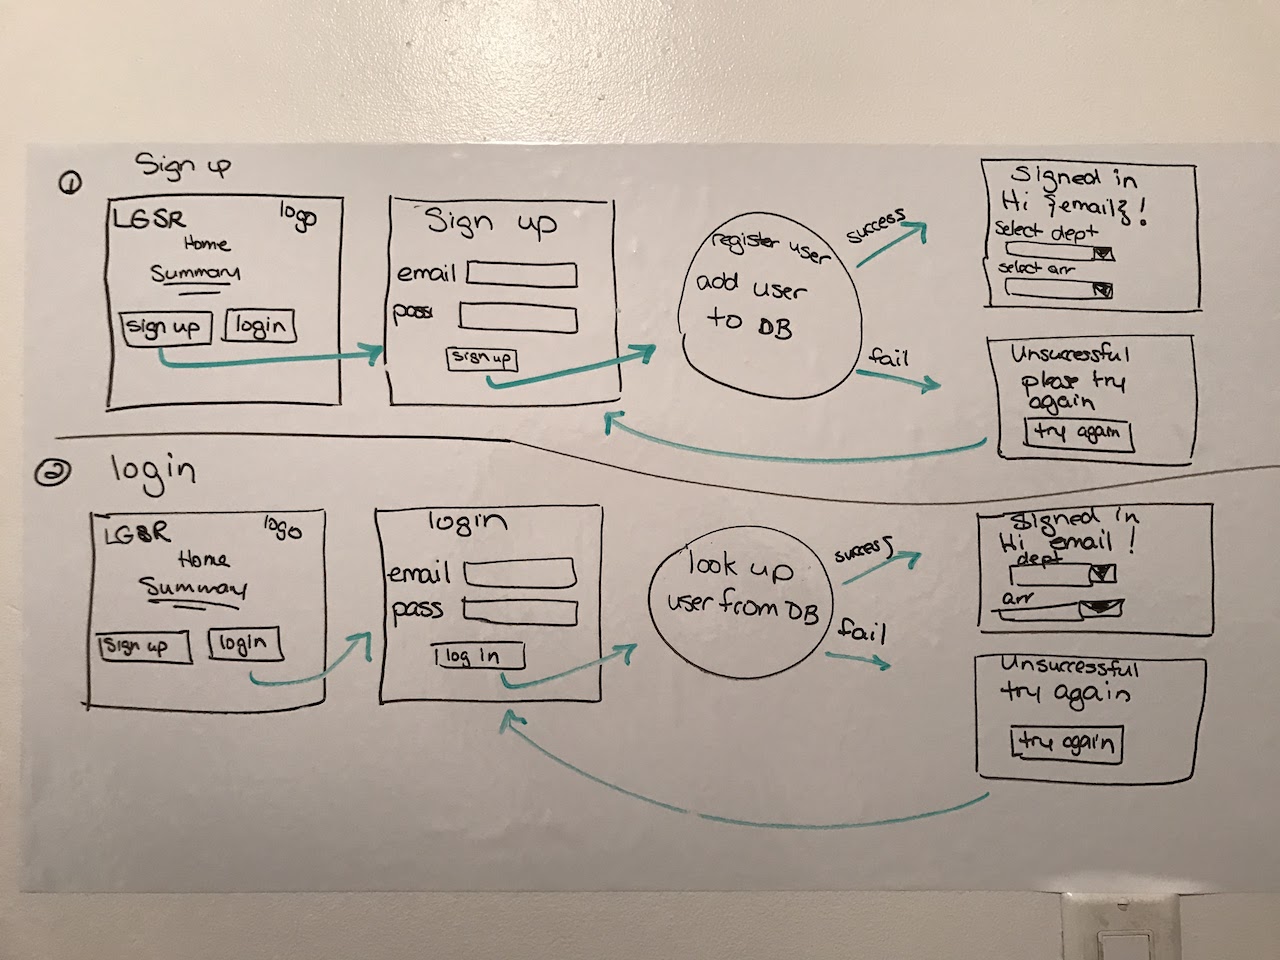 ① Sign up
LGSR logo
Home
Summary
sign up login
Sign up
email
pass
sign up
register user
add user
to DB
success
fail
Signed in
Hi {email}!
Select dept
select arr
Unsuccessful
please try
again
try again
② login
LGSR logo
Home
Summary
Sign up login
login
email
pass
log in
look up
user from DB
success
fail
Signed in
Hi email!
dept
arr
Unsuccessful
try again
try again